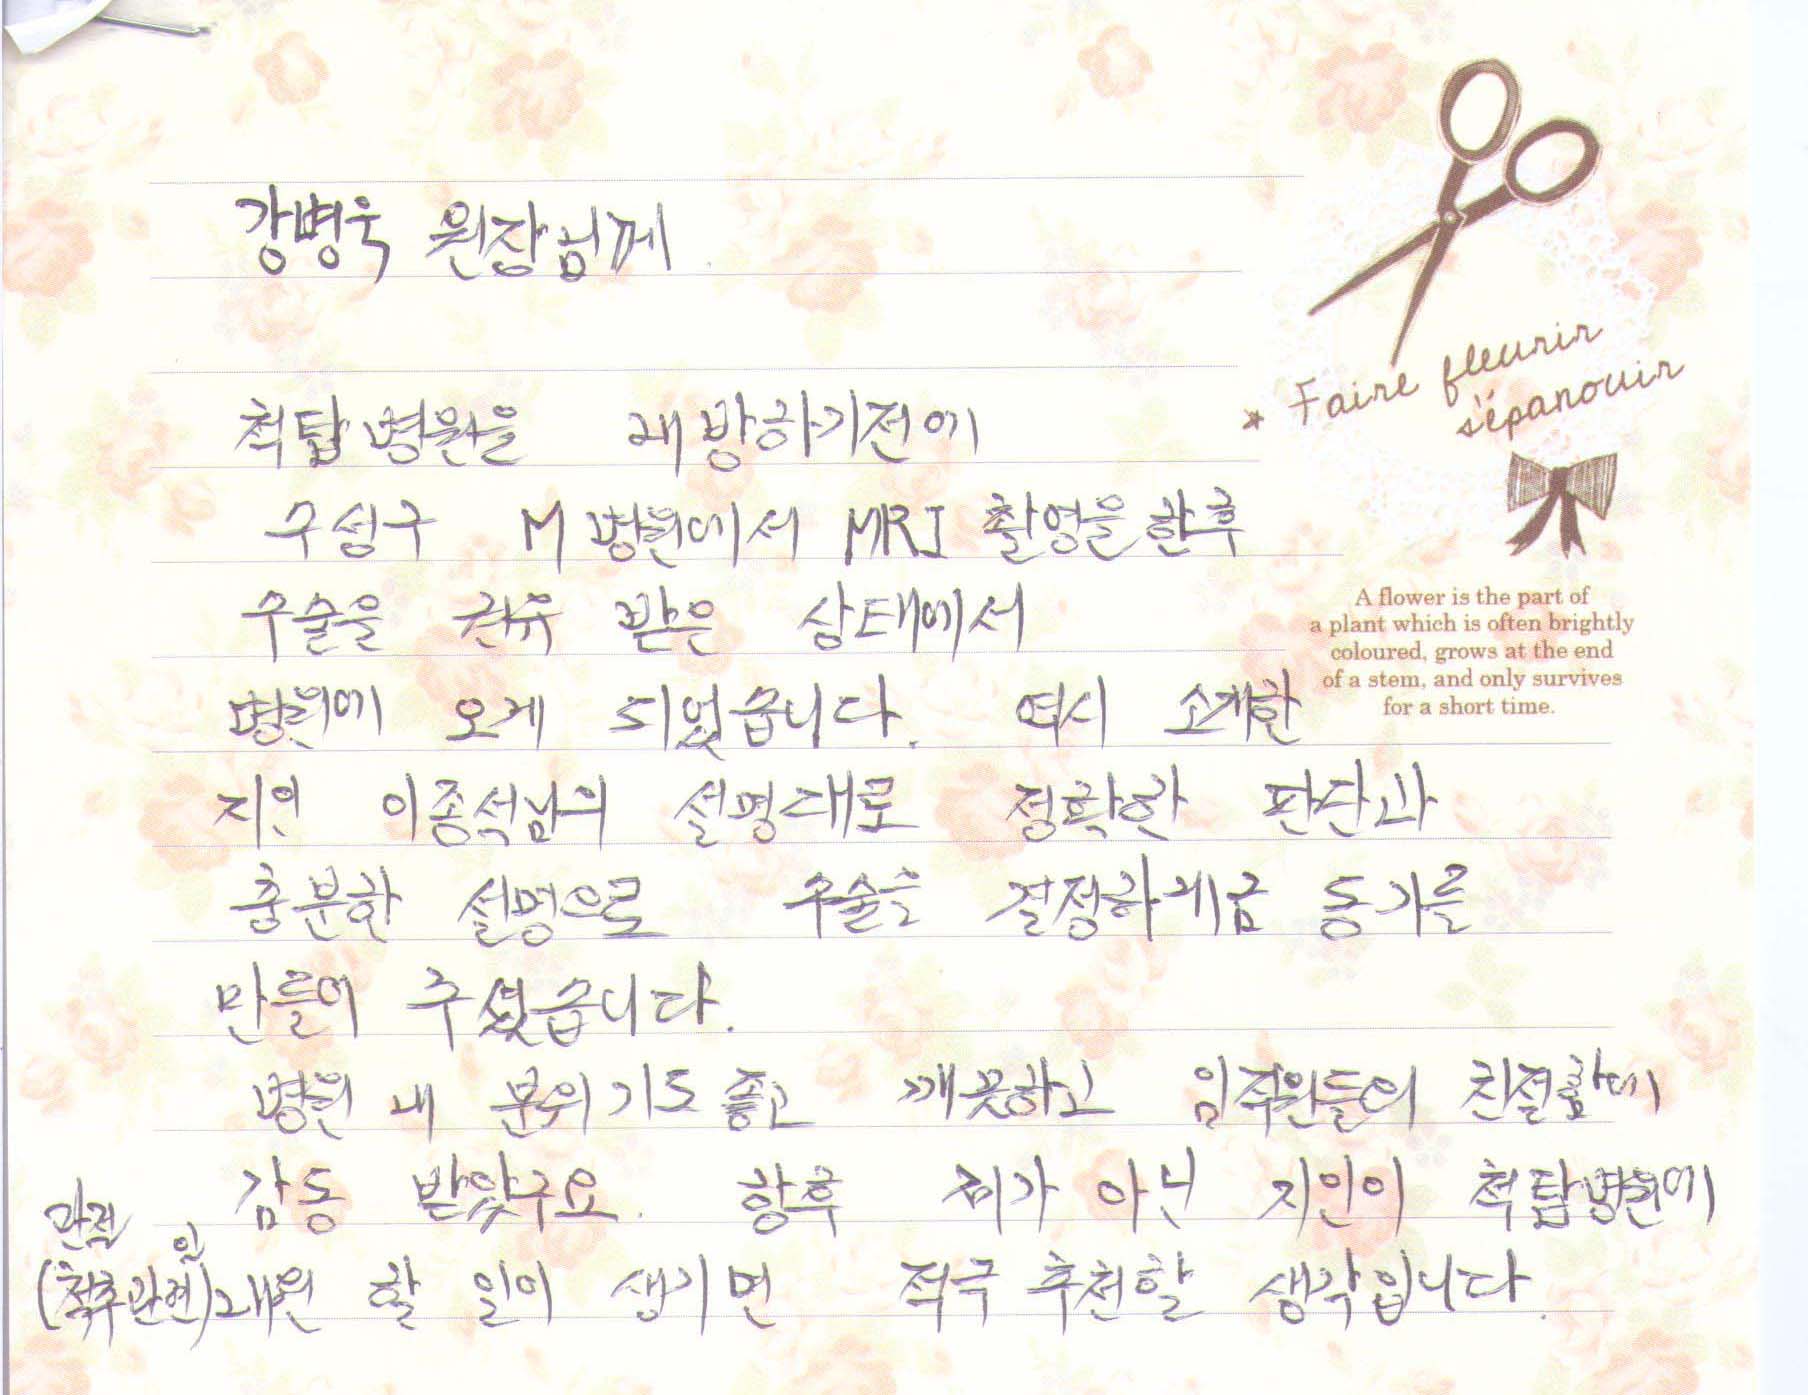 강병욱 원장님께
Faire fleurir
s'épanouir
척탑병원을 래방하기전에
수성구 M병원에서 MRI 촬영을 한후
A flower is the part of
a plant which is often brightly
coloured, grows at the end
of a stem, and only survives
for a short time.
수술을 권유 받은 상태에서
병원에 오게 되었습니다. 역시 소개한
지인 이종석님의 설명대로 정확한 판단과
충분한 설명으로 수술을 결정하게금 동기를
만들어 주셨습니다.
병원 내 분위기도 좋고 깨끗하고 임직원들의 친절함에
감동 받았구요. 향후 제가 아닌 지인이 척탑병원에
관절
인
(척추관련)래원 할 일이 생기면 적극 추천할 생각입니다.